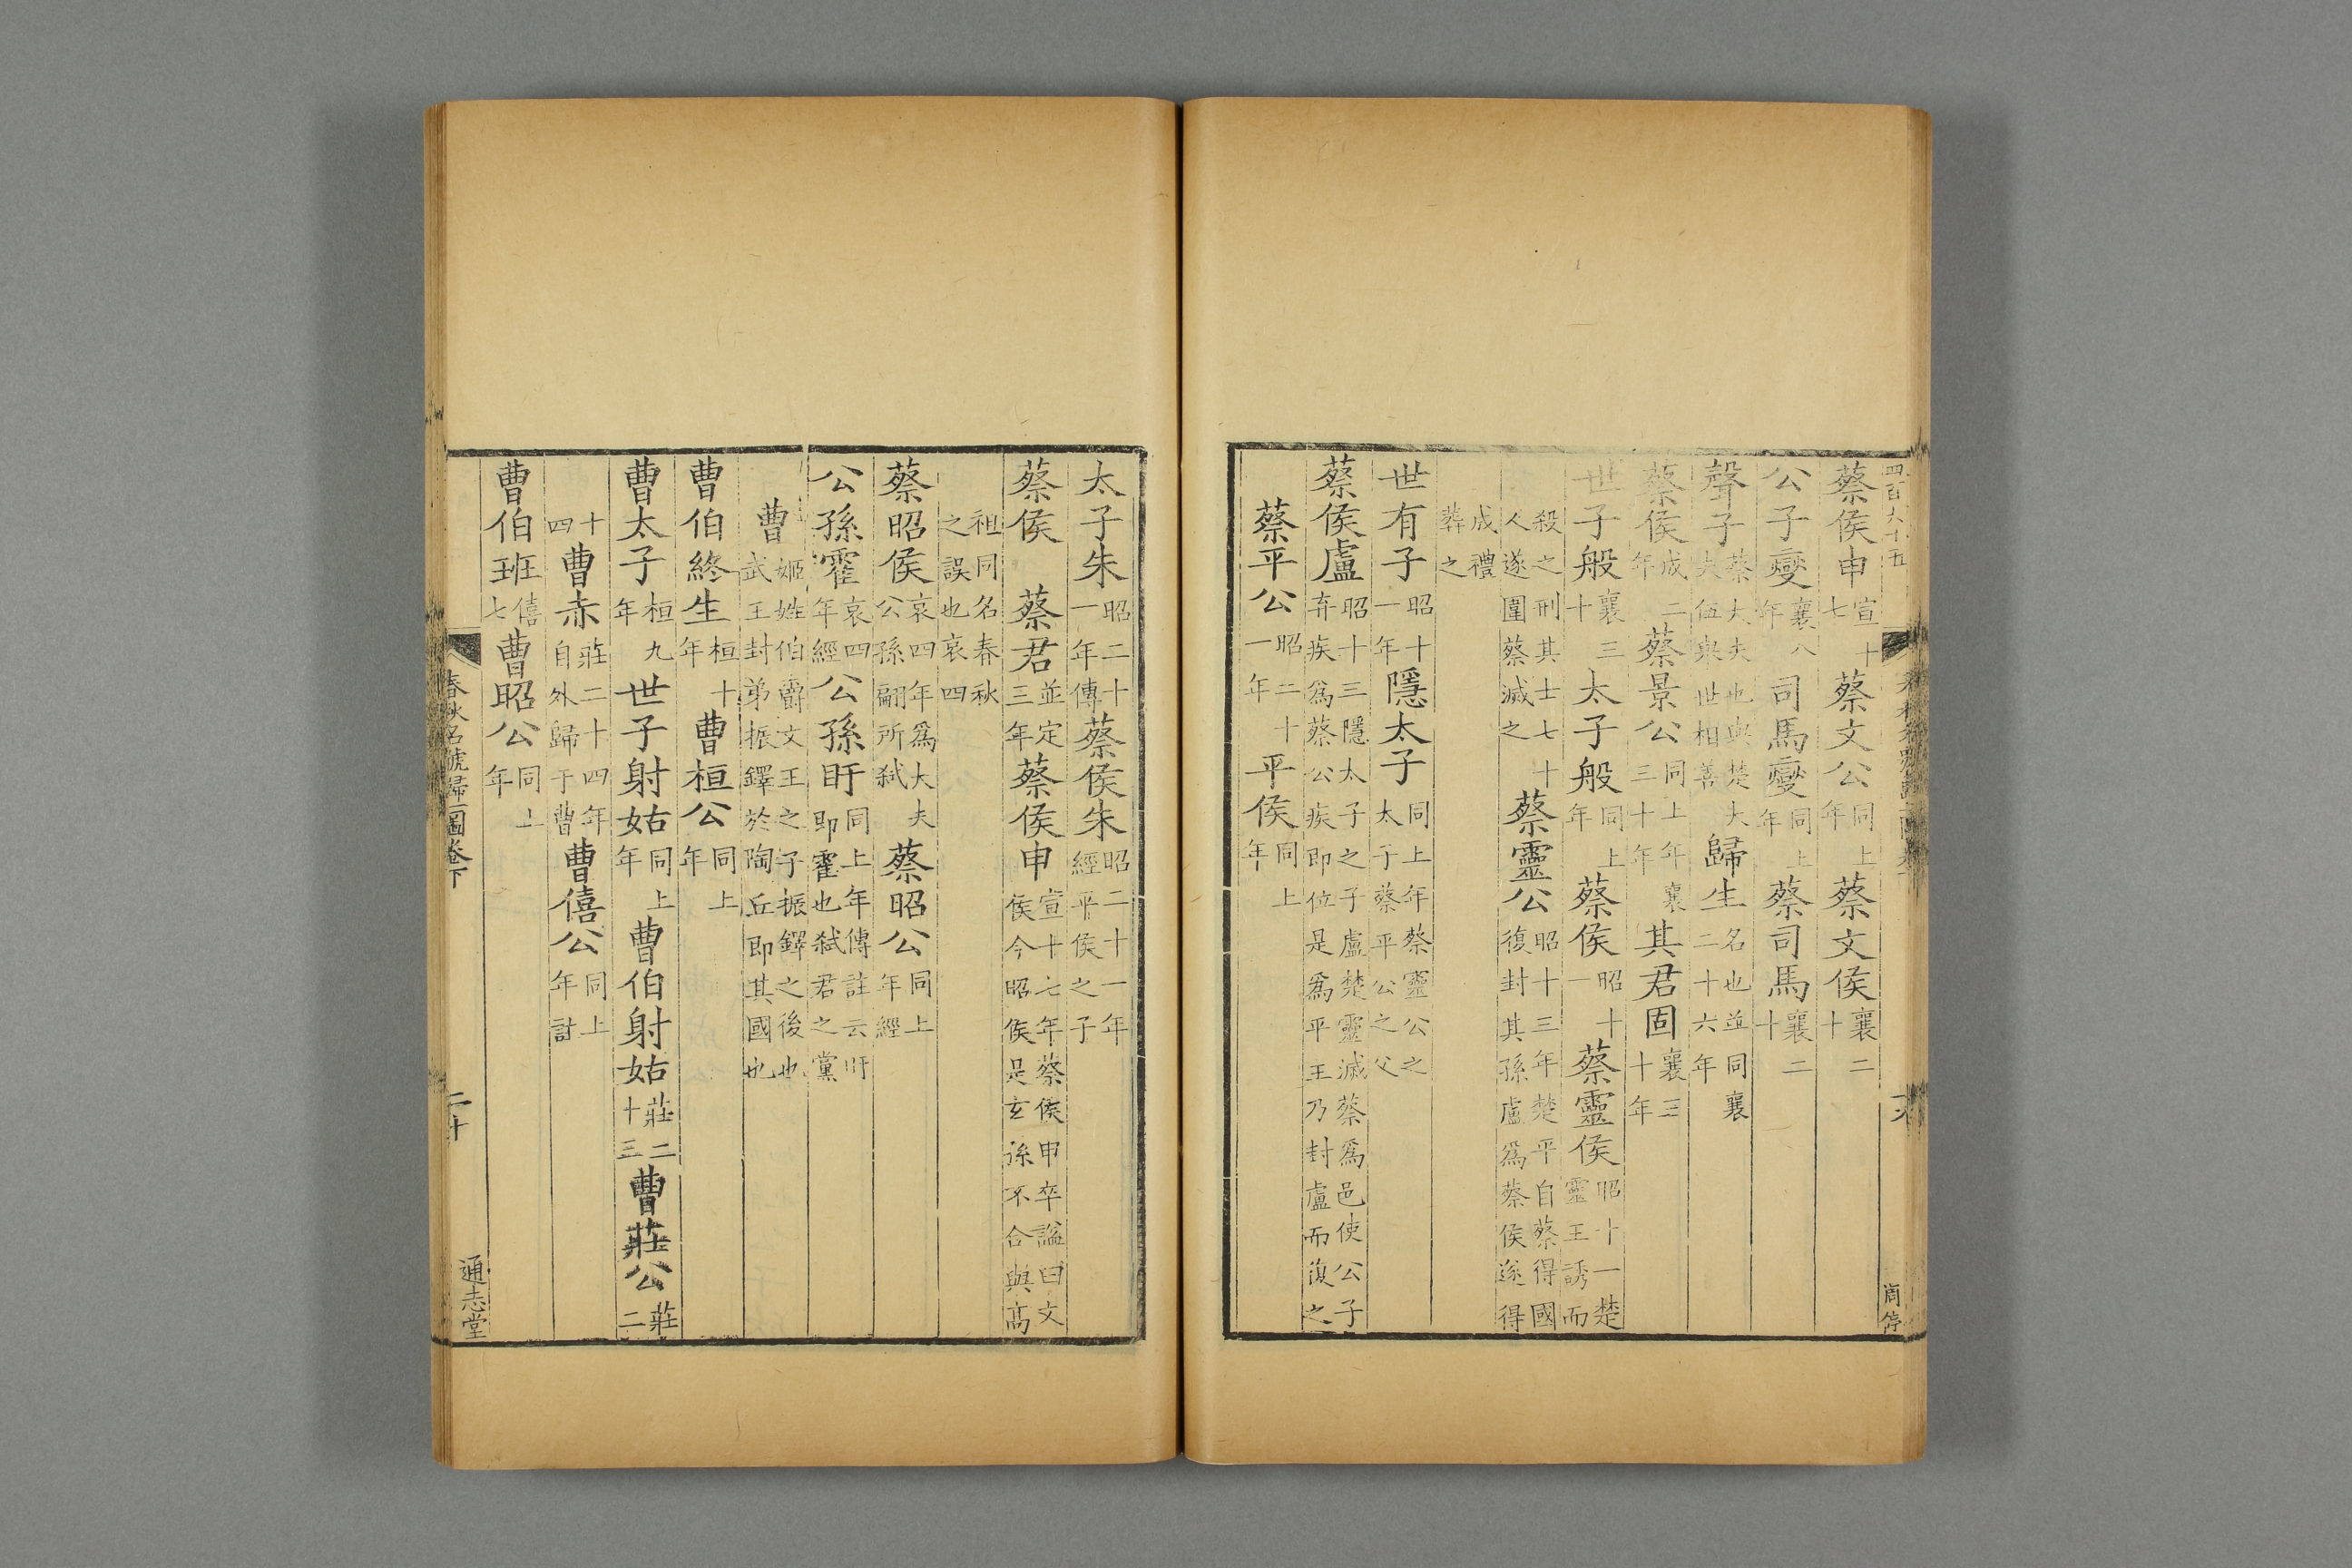 四百六十五
蔡侯申宣十七蔡文公同上年蔡文侯襄二十
公子燮襄八年司馬燮同上年蔡司馬襄二十
聲子蔡大夫也與楚大夫伍舉世相善歸生名也並同襄二十六年
蔡侯成二年蔡景公同上年襄三十年其君固襄三十年
世子般襄三十太子般同上年蔡侯昭十一蔡靈侯昭十一楚靈王誘而
殺之刑其士七十人遂圍蔡滅之蔡靈公昭十三年楚平自蔡得國復封其孫盧爲蔡侯遂得
成禮葬之
世有子昭十一年隱太子同上年蔡靈公之太子蔡平公之父
蔡侯盧昭十三隱太子之子盧楚靈滅蔡爲邑使公子弃疾爲蔡公疾即位是爲平王乃封盧而復之
蔡平公昭二十一年平侯同上年
太子朱昭二十一年傳蔡侯朱昭二十一年經平侯之子
蔡侯 蔡君並定三年蔡侯申宣十七年蔡侯申卒謚曰文侯今昭侯是玄孫不合與高
祖同名春秋之誤也哀四
蔡昭侯哀四年爲大夫公孫翩所弑蔡昭公同上年經
公孫霍哀四年經公孫盱同上年傳註云盱即霍也弑君之黨
曹姬姓伯爵文王之子振鐸之後也武王封弟振鐸於陶丘即其國也
曹伯終生桓十年曹桓公同上年
曹太子桓九年世子射姑同上年曹伯射姑莊二十三曹莊公莊二
十四曹赤莊二十四年自外歸于曹曹僖公同上年註
曹伯班僖七曹昭公同上年
春秋名號歸一圖卷下
二十
通志堂